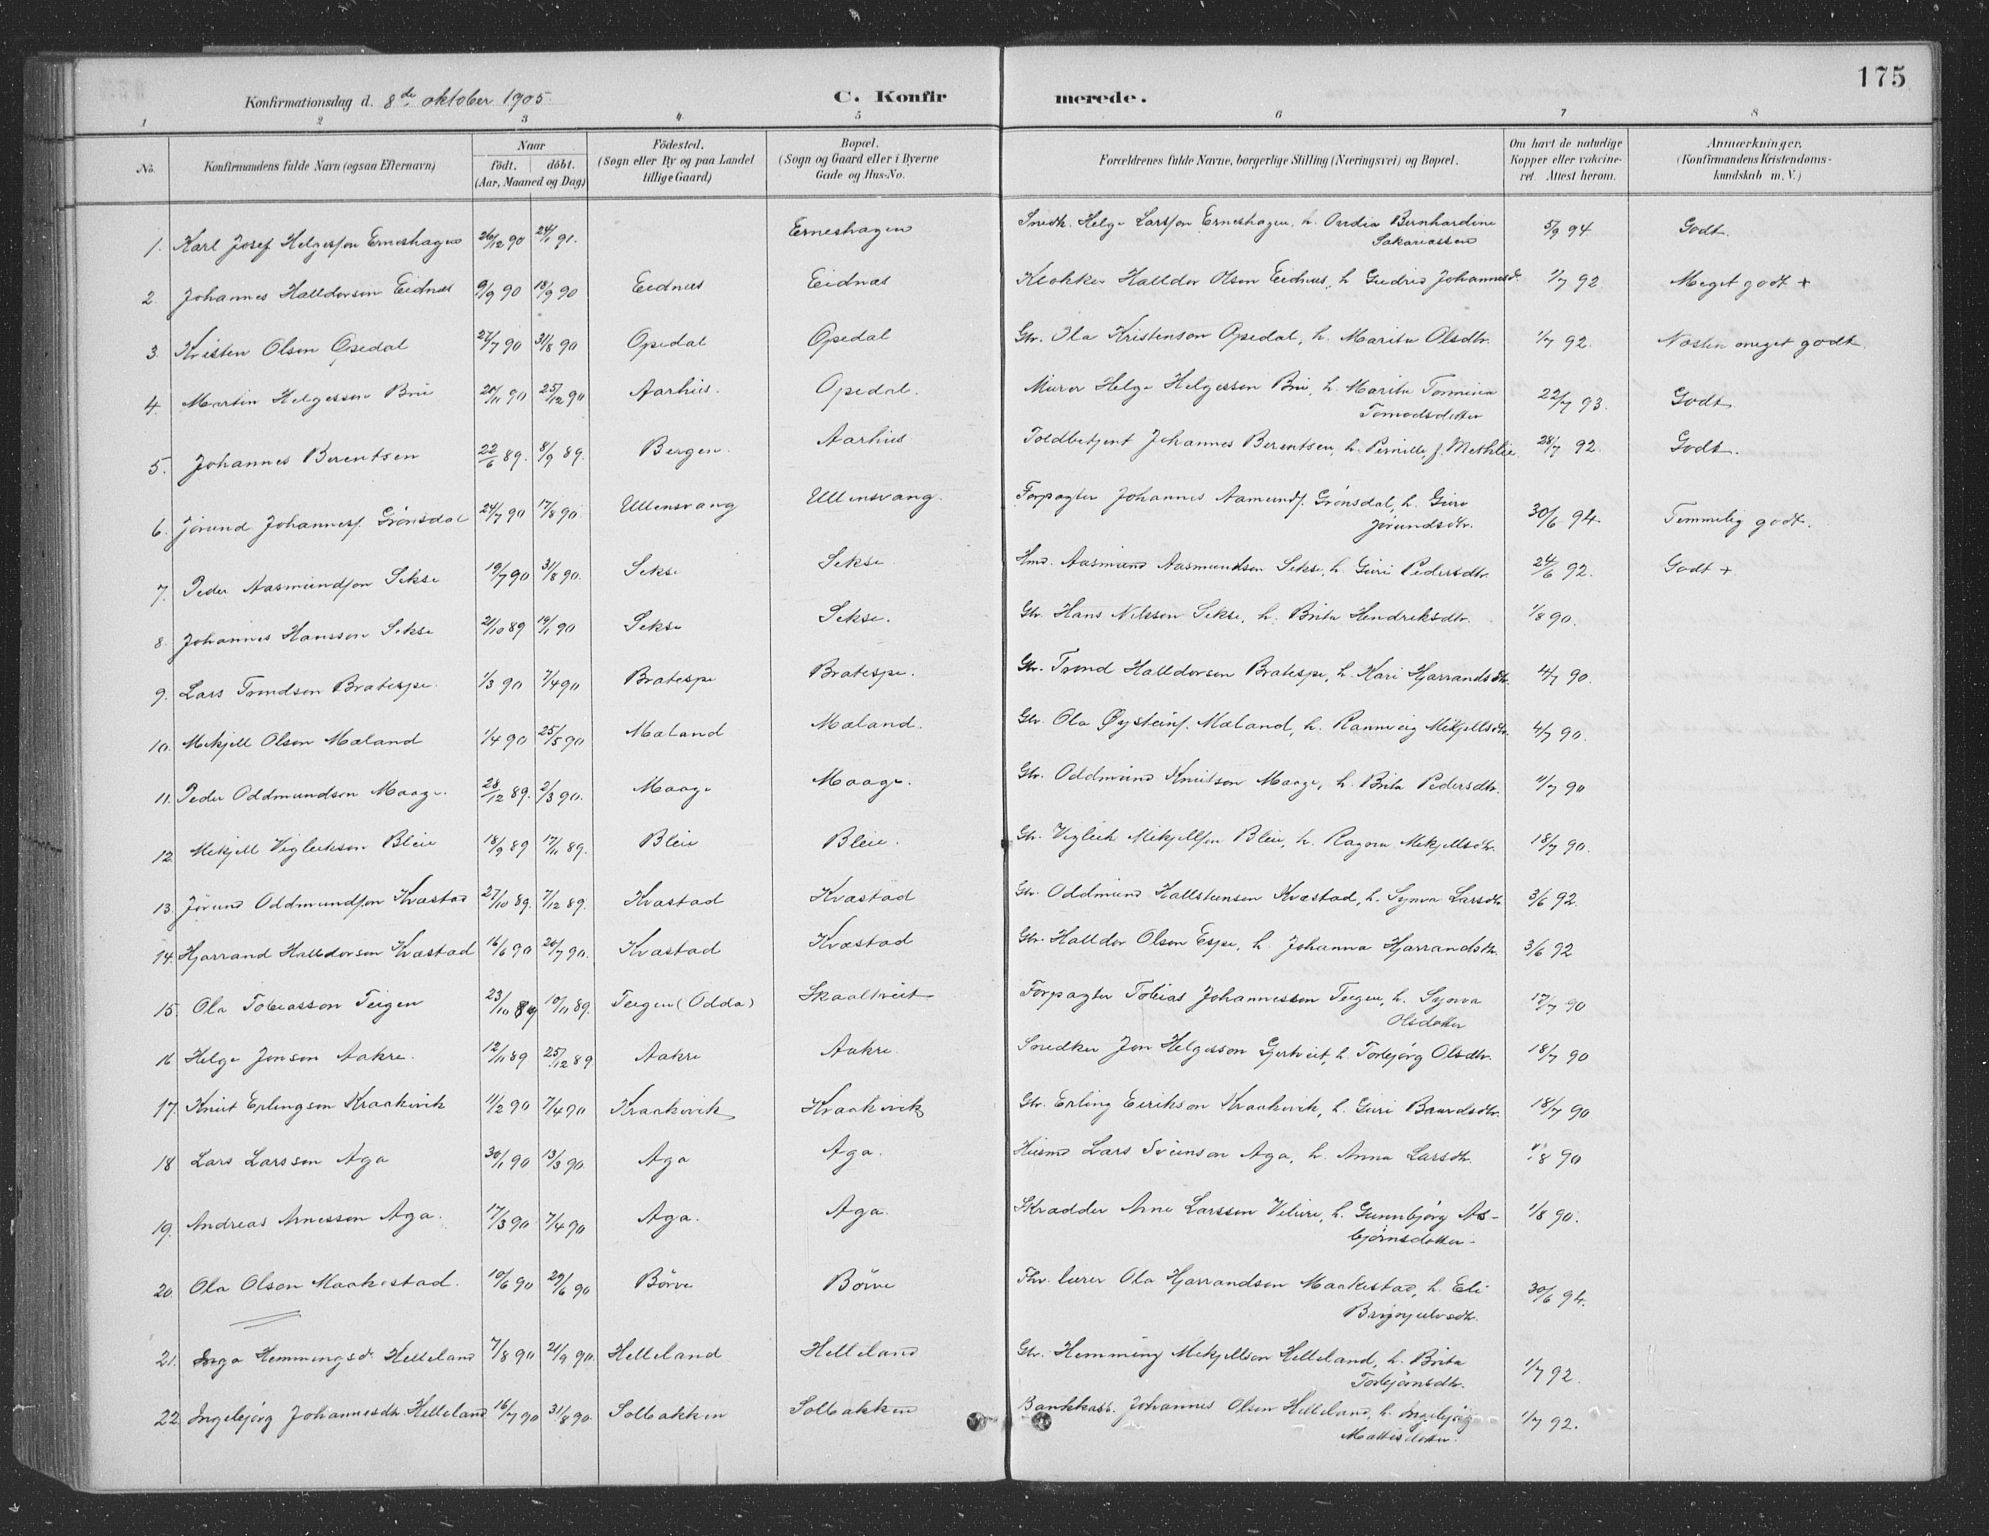 175
Konfirmationsdag d. 8de oktober 1905. C. Konfirmerede.
1 2 3 4 5 6 7 8
No. Konfirmandens fulde Navn (ogsaa Efternavn) Naar født. døbt. (Aar, Maaned og Dag) Fødested. (Sogn eller By og paa Landet tillige Gaard) Bopæl. (Sogn og Gaard eller i Byerne Gade og Hus-No. Forældrenes fulde Navne, borgerlige Stilling (Næringsvei) og Bopæl. Om havt de naturlige Kopper eller vakcineret. Attest herom. Anmærkninger. (Konfirmandens Kristendomskundskab m. V.)
1. Karl Josef Helgesson Erneshagen 26/12 90 24/1 91. Erneshagen Snedk. Helge Larsson Erneshagen, h. Bernhardine Sakariassen 5/9 94 Godt.
2. Johannes Halldorson Eidnæs 9/9 90 18/9 90 Eidnæs Eidnæs Klokker Halldor Olson Eidnæs, h. Gudrid Johannesd. 1/7 92 Meget godt +
3. Kristen Olson Opedal 27/7 90 31/8 90 Opedal Opedal Gbr. Ola Kristenson Opedal, h. Marita Olsdtr. 1/7 92. Næsten meget godt.
4. Martin Helgesson Bu 25/12 90 Aarhus. Opedal. Murer Helge Helgesson Bu, h. Marita Tomodsdotter 22/7 93. Godt
5. Johannes Berentsen 22/6 89. 8/9 89. Bergen. Aarhus Toldbetjent Johannes Berentsen, h. Pernille, f. Methlie. 28/7 92. Godt.
6. Jørund Johannesf. Grønsdal 24/7 90 17/8 90. Ullensvang Ullensvang. Forpagter Johannes Aamundf. Grønsdal, h. Guro Jørundsdtr. 30/6 94. Temmelig godt.
7. Peder Aasmundson Sekse 19/7 90 31/8 90. Sekse Sekse Hmd. Aasmund Aasmundson Sekse, h. Guri Pedersdtr. 24/6 92. Godt +
8. Johannes Hansson Sekse 21/10 89 19/1 90 Sekse Sekse. Gbr. Hans Nilsson Sekse, h. Brita Hendriksdtr. 1/8 90.
9. Lars Trondson Bratespe. 1/3 90 7/4 90 Bratespe Bratespe. Gbr. Trond Halldorson Bratespe, h. Kari Hjarrandsdtr. 4/7 90.
10. Mikjell Olson Mæland 1/4 90 25/5 90 Mæland Mæland. Gbr. Ola Øysteinf. Mæland, h. Rannveig Mikjellsdtr. 4/7 90.
11. Peder Oddmundson Maage. 28/12 89. 2/3 90. Maage Maage. Gbr. Oddmund Knutson Maage, h. Brita Pedersdtr. 11/7 90
12. Mikjell Vigleikson Bleie 18/9 89 17/11 89. Bleie Bleie. Gbr. Vigleik Mikjellson Bleie, h. Ragna Mikjellsdtr. 18/7 90.
13. Jørund Oddmundson Kvæstad 27/10 89. 7/12 89. Kvæstad Kvæstad Gbr. Oddmund Hallsteinson Kvæstad, h. Synva Larsdtr. 3/6 92.
14. Hjarrand Halldorson Kvæstad 16/6 90 20/7 90. Kvæstad Kvæstad Gbr. Halldor Olson Espe, h. Johanna Hjarrandsdtr. 3/6 92
15. Ola Tobiasson Teigen 23/10 89 10/11 89. Teigen (Odda) Skaaltveit Forpagter Tobias Johannesson Teigen, h. Synva Olsdotter 17/7 90
16 Helge Jonson Aakre. 12/11 89 25/12 89 Aakre Aakre. Snedker Jon Helgesson Gjertveit, h. Torbjørg Olsdtr. 18/7 90
17. Knut Erlingson Kraakevik 11/2 90 7/4 90 Kraakevik Kraakevik Gbr. Erling Eirikson Kraakevik, h. Guri Baardsdtr. 18/7 90
18 Lars Larsson Aga 30/1 90 13/3 90. Aga Aga. Husmd Lars Sveinson Aga, h. Anna Larsdtr. 1/8 90
19. Andreas Arnesson Aga. 17/3 90 7/4 90 Aga. Aga. Skrædder Arne Larsson Velure, h. Gunnbjørg Asbjørnsdotter. 1/8 90.
20. Ola Olson Maakestad. 10/6 90 29/6 90 Børve Børve Fhv. lærer Ola Hjarrandson Maakestad, h. Eli Brynjulvsdtr. 30/6 94.
21. Inga Hemmingsd. Helleland 7/8 90 21/9 90. Helleland Helleland Gbr. Hemming Mikjellson Helleland, h. Brita Torbjørnsdtr. 1/7 92.
22. Ingebjørg Johannesdtr. Helleland 16/7 90 31/8 90. Solbakken Solbakken Bankkass. Johannes Olson Helleland, h. Ingebjørg Mattisdotter. 1/7 92.